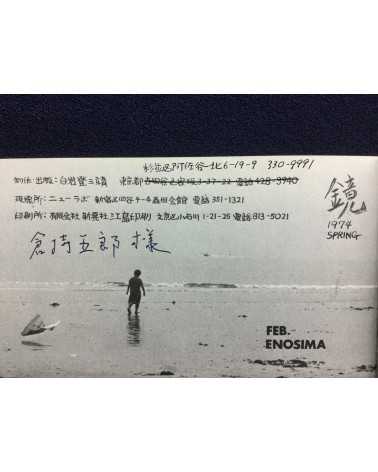 杉並区阿佐谷北6-19-9 330-9991
制作・出版：白岩登三靖 東京都 3-37-22 電話428-3940
現像所：ニューラボ 新宿区四谷4-4 森田会館 電話351-1321
印刷所：有限会社 三工島印刷 文京区小石川1-21-25 電話813-5021
鏡
1974
SPRING
倉持五郎様
FEB.
ENOSIMA